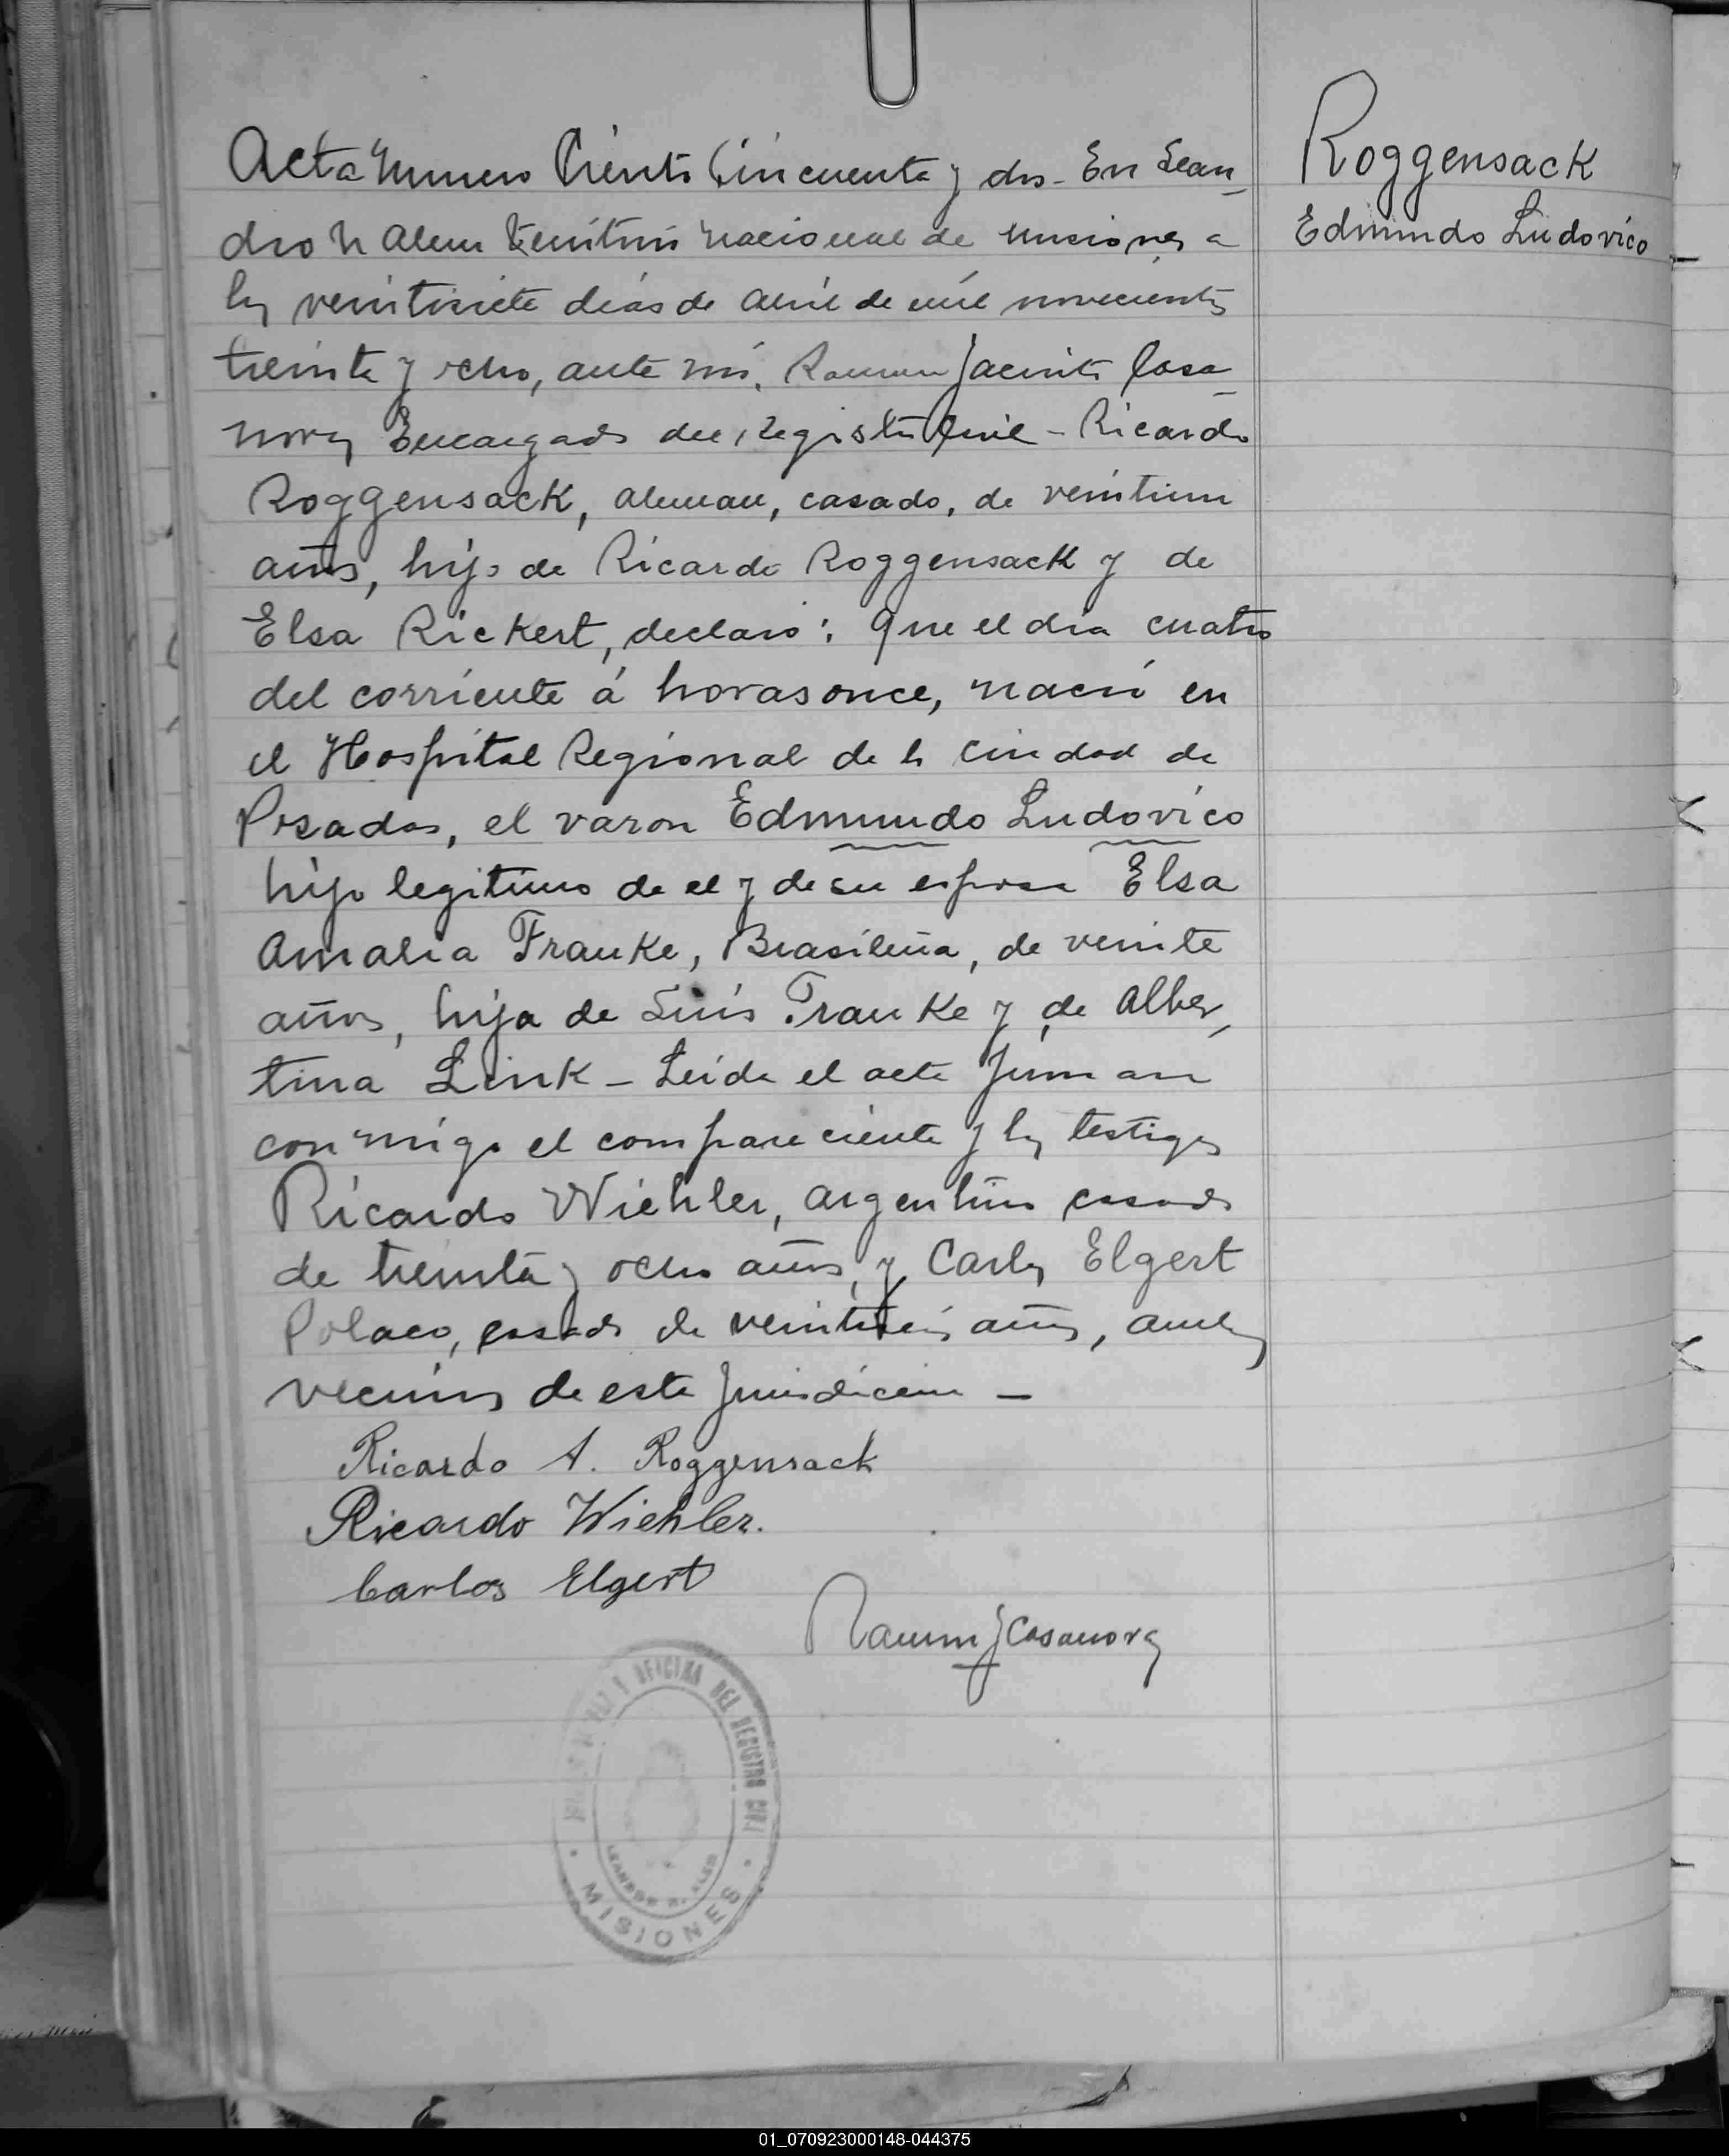 Acta Numero Ciento Cincuenta y dos - En Lean-
dro N Alem Territorio Nacional de Misiones a
los veintisiete dias de Abril de mil novecientos
treinta y ocho, ante mi, Ramon Jacinto Casa-
nova Encargado del Registro Civil - Ricardo
Roggensack, aleman, casado, de veintiun
años, hijo de Ricardo Roggensack y de
Elsa Rickert, declaró: Que el dia cuatro
del corriente á horas once, nació en
el Hospital Regional de la Ciudad de
Posadas, el varon Edmundo Ludovico
hijo legitimo de el y de su esposa Elsa
Amalia Franke, Brasileña, de veinte
años, hija de Luis Franke y de Alber-
tina Link - Leida el acta firman
conmigo el compareciente y los testigos
Ricardo Wiehler, argentino casado
de treinta y ocho años, y Carlos Elgert
Polaco, casado de veintiseis años, ambos
vecinos de esta Jurisdicion -
Ricardo A. Roggensack
Ricardo Wiehler.
Carlos Elgert
Ramon J Casanova
Roggensack
Edmundo Ludovico
OFICINA DEL REGISTRO CIVIL
LEANDRO N. ALEM
MISIONES
01_070923000148-044375